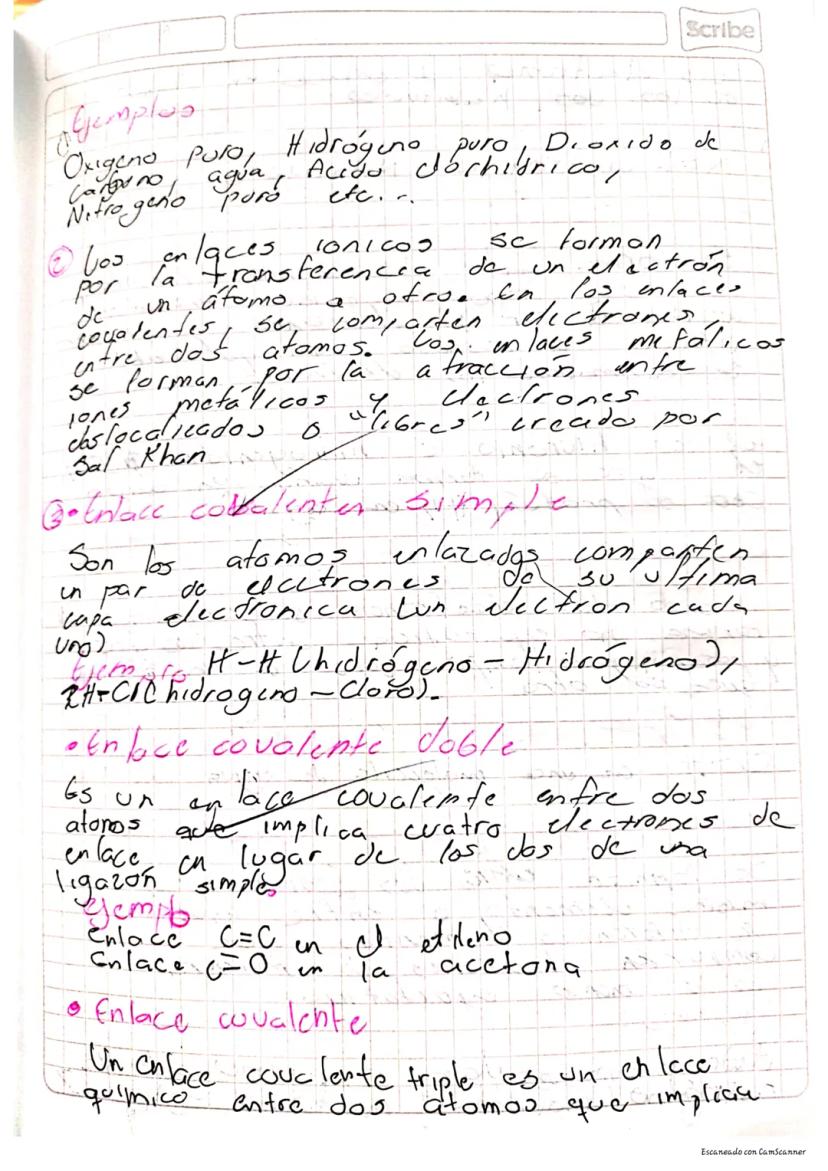 Scribe
Ejemplos
① Oxigeno puro, Hidrógeno puro, Dioxido de
Carbono, agua, Acido clorhidrico,
Nitrogeno puro etc...
② Los enlaces ionicos se forman
por la transferencia de un electrón
de un átomo a otro. En los enlaces
covalentes, se comparten electrones,
entre dos atomos. Los enlaces metálicos
se forman por la atracción entre
iones metálicos y electrones
deslocalizados o "libres" creado por
Sal Khan
③ • Enlace covalentes simple
Son los atomos enlazados comparten
un par de electrones de su ultima
capa electronica (un electron cada
uno)
Ejemplo H-H (hidrógeno - Hidrógeno),
H-Cl (hidrogeno - Cloro).
• Enlace covalente doble
Es un enlace covalente entre dos
atomos que implica cuatro electrones de
enlace en lugar de los dos de una
ligazón simple
Ejemplo
Enlace C=C en el etileno
Enlace C=O en la acetona
• Enlace covalente
Un enlace covalente triple es un enlace
químico entre dos atomos que implica
Escaneado con CamScanner